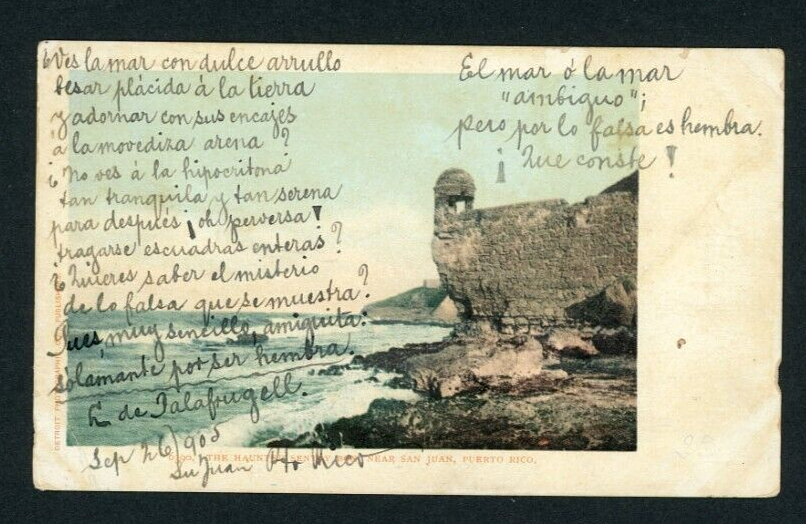 ¿Ves la mar con dulce arrullo
besar plácida á la tierra
y adornar con sus encajes
á la movediza arena?
¿No ves á la hipocritona
tan tranquila y tan serena
para después ¡oh perversa!
tragarse escuadras enteras?
¿Quieres saber el misterio
de lo falsa que se muestra?
Pues, muy sencillo, amiguita:
solamante por ser hembra.
de Palafrugell.
Sep 26/905
Sn Juan Pto Rico
El mar ó la mar
"ambiguo";
pero por lo falsa es hembra.
¡Que conste!
THE HAUNTED SENTRY NEAR SAN JUAN, PUERTO RICO.
DETROIT